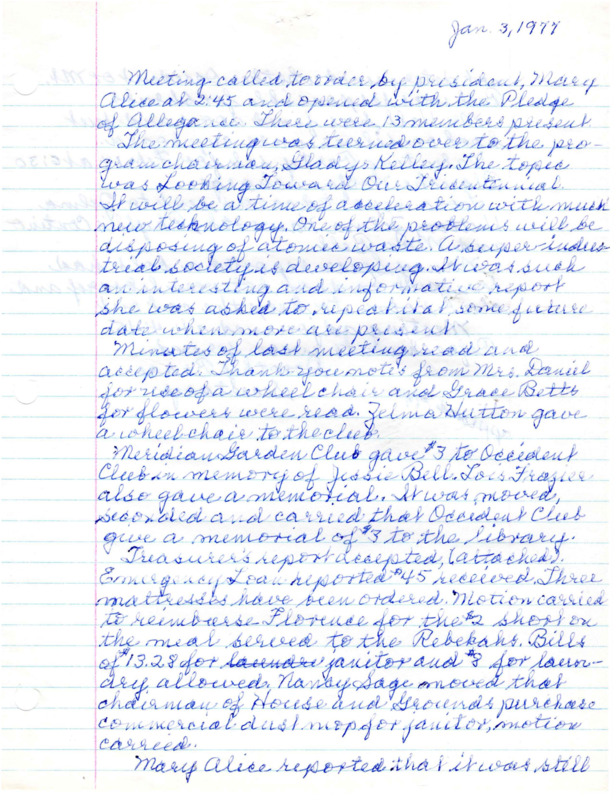 Jan. 3, 1977
Meeting called to order by president, Mary
Alice at 2:45 and opened with the Pledge
of Allegance. There were 13 members present.
The meeting was turned over to the pro-
gram chairman, Gladys Kelley. The topic
was Looking Toward Our Tricentennial.
It will be a time of acceleration with much
new technology. One of the problems will be
disposing of atomic waste. A super-indus-
trial society is developing. It was such
an interesting and informative report
she was asked to repeat it at some future
date when more are present.
Minutes of last meeting read and
accepted. Thank you notes from Mrs. Daniel
for use of a wheel chair and Grace Betts
for flowers were read. Zelma Hutton gave
a wheel chair to the club.
Meridian Garden Club gave $3 to Occident
Club in memory of Jessie Bell. Lois Frazier
also gave a memorial. It was moved,
seconded and carried that Occident Club
give a memorial of $3 to the library.
Treasurer's report accepted, (attached).
Emergency Loan reported $45 received. Three
mattresses have been ordered. Motion carried
to reimburse Florence for the $2 short on
the meal served to the Rebekahs. Bills
of $13.28 for janitor and $8 for laun-
dry allowed. Nancy Sage moved that
chairman of House and Grounds purchase
commercial dust mop for janitor, motion
carried.
Mary Alice reported that it was still